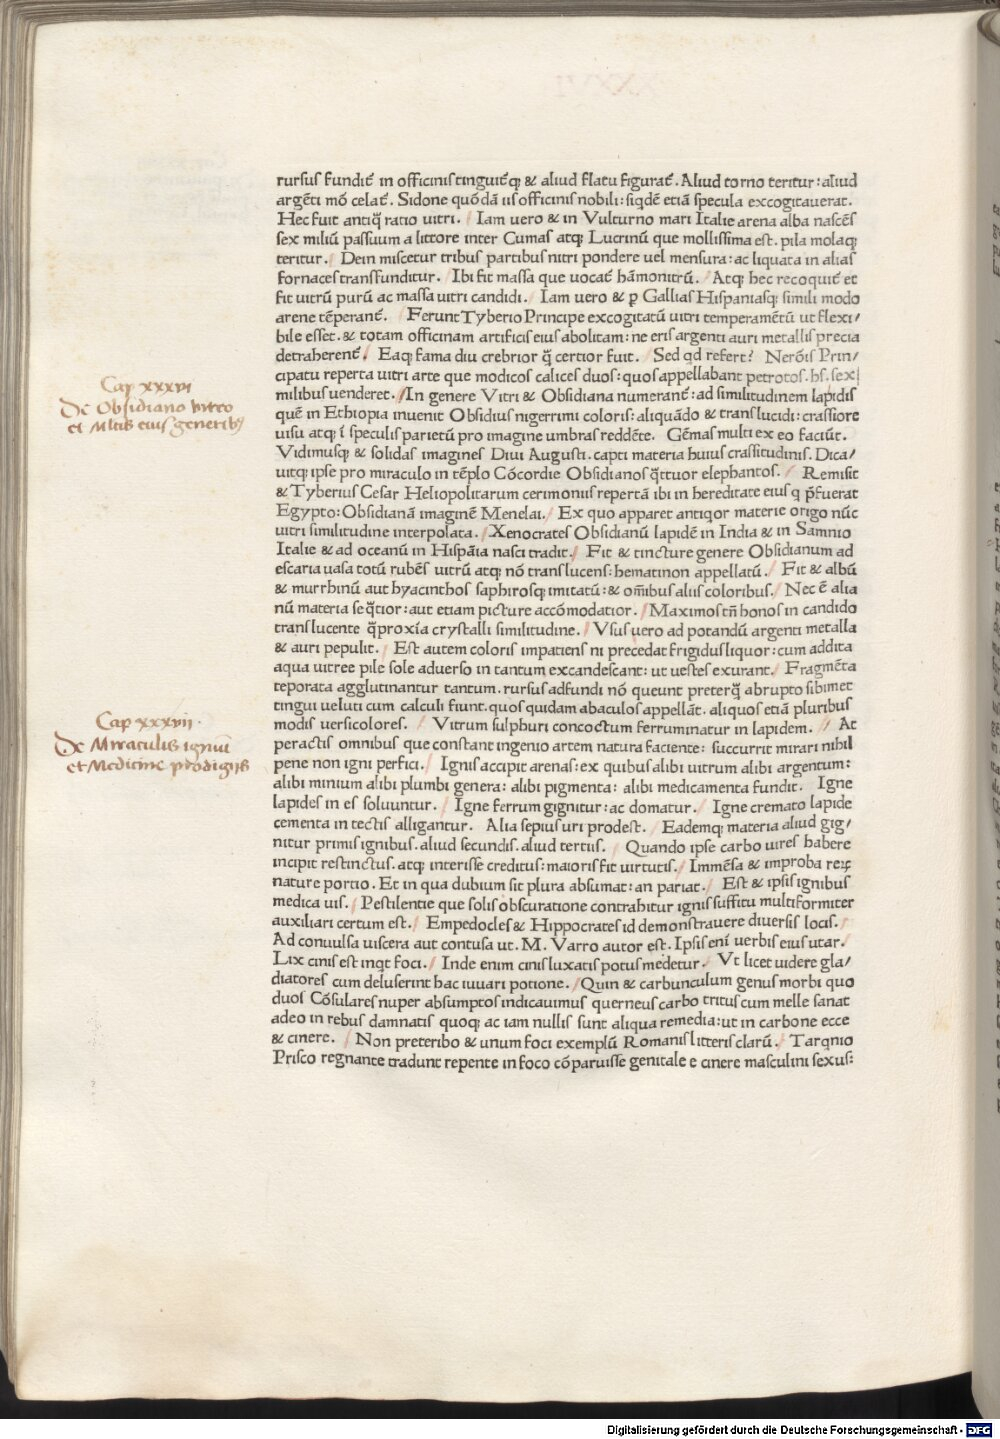 rursus fundit᷑ in officinis tinguit᷑qꝫ & aliud flatu figurat᷑. Aliud torno teritur: aliud
argẽti mõ celat᷑. Sidone quõdã iis officinis nobili: siqdẽ etiã specula excogitauerat.
Hec fuit antiq̃ ratio uitri. / Iam uero & in Vulturno mari Italie arena alba nascẽs
sex miliũ passuum a littore inter Cumas atqꝫ Lucrinũ que mollissima est. pila molaqꝫ
teritur. / Dein miscetur tribus partibus nitri pondere uel mensura: ac liquata in alias
fornaces transfunditur. / Ibi fit massa que uocat᷑ hãmonitrũ. / Atqꝫ hec recoquit᷑ et
fit uitrũ purũ ac massa uitri candidi. / Iam uero & ꝑ Gallias Hispaniasqꝫ simili modo
arene tẽperant᷑. / Ferunt Tyberio Principe excogitatũ uitri temperamẽtũ ut flexi/
bile esset. & totam officinam artificis eius abolitam: ne eris argenti auri metallis precia
detraherent᷑. / Eaqꝫ fama diu crebrior q̃ certior fuit. / Sed qd refert? Nerõis Prin/
cipatu reperta uitri arte que modicos calices duos: quos appellabant petrotos. hs. sex|
milibus uenderet. // In genere Vitri & Obsidiana numerant᷑: ad similitudinem lapidis
quẽ in Ethiopia inuenit Obsidius nigerrimi coloris: aliquãdo & translucidi: crassiore
uisu atqꝫ ĩ speculis parietũ pro imagine umbras reddẽte. Gẽmas multi ex eo faciũt.
Vidimusqꝫ & solidas imagines Diui Augusti. capti materia huius crassitudinis. Dica/
uitqꝫ ipse pro miraculo in tẽplo Cõcordie Obsidianos q̃ttuor elephantos. / Remisit
& Tyberius Cesar Heliopolitarum cerimoniis repertã ibi in hereditate eius q p̃fuerat
Egypto: Obsidianã imaginẽ Menelai. / Ex quo apparet antiqor materie origo nũc
uitri similitudine interpolata. / Xenocrates Obsidianũ lapidẽ in India & in Samnio
Italie & ad oceanũ in Hispãia nasci tradit. / Fit & tincture genere Obsidianum ad
escaria uasa totũ rubẽs uitrũ atqꝫ nõ translucens: hematinon appellatũ. / Fit & albũ
& murrhinũ aut hyacinthos saphirosqꝫ imitatũ: & om̃ibus aliis coloribus. / Nec ẽ alia
nũ materia seq̃tior: aut etiam picture accõmodatior. / Maximos tñ honos in candido
translucente q̃proxia crystalli similitudine. / Vsus uero ad potandũ argenti metalla
& auri pepulit. / Est autem coloris impatiens ni precedat frigidus liquor: cum addita
aqua uitree pile sole aduerso in tantum excandescant: ut uestes exurant. / Fragmẽta
teporata agglutinantur tantum. rursus adfundi nõ queunt preterq̃ abrupto sibimet
tingui ueluti cum calculi fiunt. quos quidam abaculos appellãt. aliquos etiã pluribus
modis uersicolores. / Vitrum sulphuri concoctum ferruminatur in lapidem. // At
peractis omnibus que constant ingenio artem natura faciente: succurrit mirari nihil
pene non igni perfici. / Ignis accipit arenas: ex quibus alibi uitrum alibi argentum:
alibi minium alibi plumbi genera: alibi pigmenta: alibi medicamenta fundit. Igne
lapides in es soluuntur. / Igne ferrum gignitur: ac domatur. / Igne cremato lapide
cementa in tectis alligantur. Alia sepius uri prodest. / Eademqꝫ materia aliud gig/
nitur primis ignibus. aliud secundis. aliud tertiis. / Quando ipse carbo uires habere
incipit restinctus. atqꝫ interisse creditus: maioris fit uirtutis. / Immẽsa & improba reꝝ
nature portio. Et in qua dubium sit plura absumat: an pariat. / Est & ipsis ignibus
medica uis. / Pestilentie que solis obscuratione contrahitur ignis suffitu multiformiter
auxiliari certum est. / Empedocles & Hippocrates id demonstrauere diuersis locis. /
Ad conuulsa uiscera aut contusa ut. M. Varro autor est. Ipsis enĩ uerbis eius utar. /
Lix cinis est inqt foci. / Inde enim cinis luxatis potus medetur. / Vt licet uidere gla/
diatores cum deluserint hac iuuari potione. / Quin & carbunculum genus morbi quo
duos Cõsulares nuper absumptos indicauimus querneus carbo tritus cum melle sanat
adeo in rebus damnatis quoqꝫ ac iam nullis sunt aliqua remedia: ut in carbone ecce
& cinere. / Non preteribo & unum foci exemplũ Romanis litteris clarũ. / Tarqnio
Prisco regnante tradunt repente in foco cõparuisse genitale e cinere masculini sexus:
Cap xxxvi
De Obsidiano vitro
et Multis eius generibꝫ
Cap xxxvii.
De Miraculis igniũ
et Medicine prodigijs
Digitalisierung gefördert durch die Deutsche Forschungsgemeinschaft - DFG